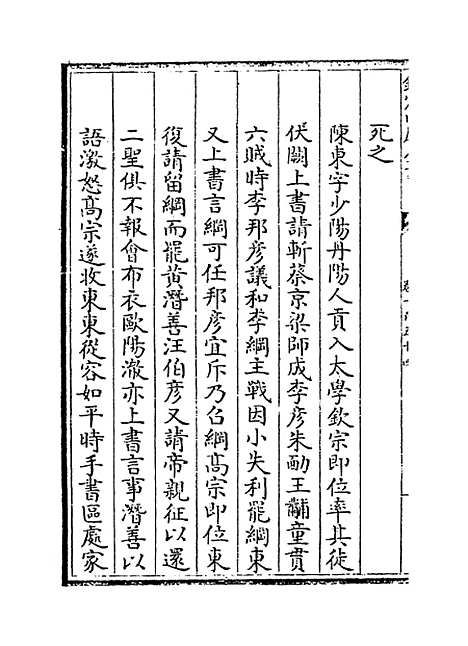 死之
陳東字少陽丹陽人貢入太學欽宗即位率其徒
伏闕上書請斬蔡京梁師成李彦朱勔王黼童貫
六賊時李邦彦議和李綱主戰因小失利罷綱東
又上書言綱可任邦彦宜斥乃召綱髙宗即位東
復請留綱而罷黄潛善汪伯彦又請帝親征以還
二聖俱不報會布衣歐陽澈亦上書言事潛善以
語激怒髙宗遂收東東從容如平時手書區處家